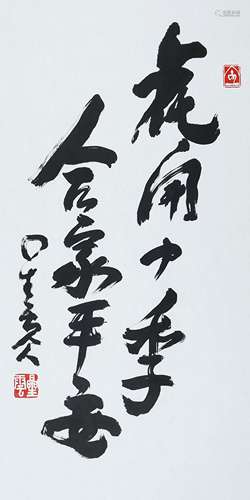 花開四季
合家平安
星雲